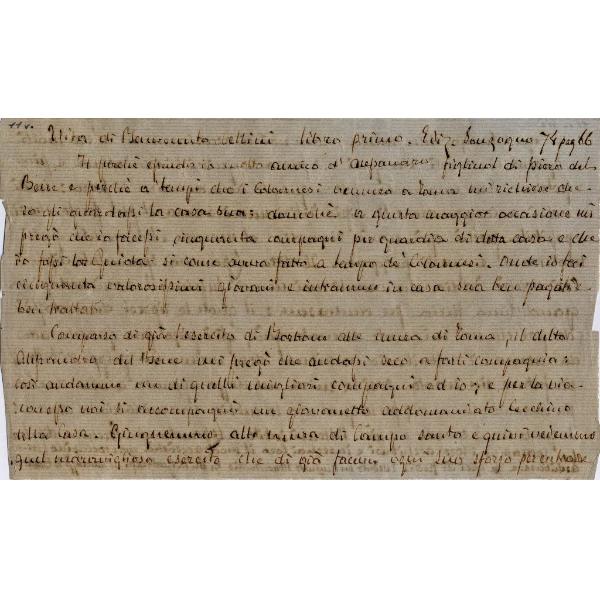 114.
Vita di Benvenuto Cellini libro primo. Ediz. Sonzogno 74 pag 66
Il perchè essendo io molto amico d'Alessandro figliuol di Piero del
Bene e perchè a tempi che i Colonnesi vennero a Roma mi richiese che
io gli guardassi la casa sua; donchè a questa maggior occasione mi
pregò che io facessi cinquanta compagni per guardia di detta casa e che
io fossi lor Guida si come avevo fatto a tempo de' Colonnesi. Onde io feci
cinquanta valorosissimi giovani e intrammo in casa sua ben pagati e
ben trattati.
Comparso di già l'esercito di Borbone alle mura di Roma il detto
Alessandro del Bene mi pregò che andassi seco a farli compagnia:
così andammo un di quelli migliori compagni ed io; e per la via
con esso noi si accompagnò un giovanetto addomandato Cecchino
della Casa. Giugnemmo alle mura di Campo santo e quivi vedemmo
quel maraviglioso esercito che di già faceva ogni suo sforzo per entrare